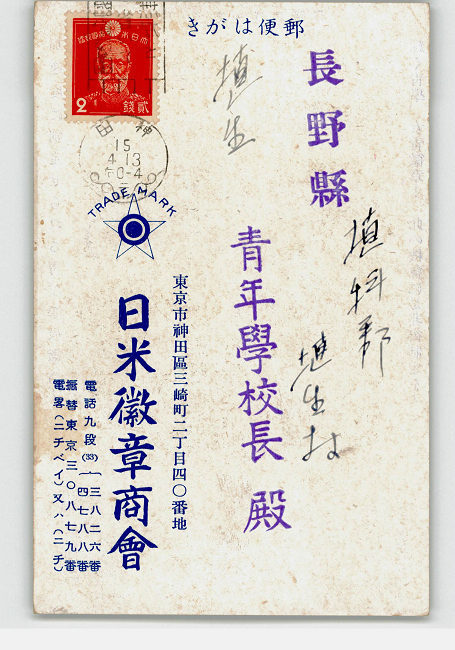 きがは便郵
大日本帝國郵便
2 錢貳
神田
15
4.13
0-4
長野縣
埴科郡
埴生村
埴生
青年學校長 殿
TRADE MARK
東京市神田區三崎町二丁目四〇番地
日米徽章商會
電話九段(33)(三八二六番
(四七八八番
振替東京三〇八七九番
電畧(ニチベイ)又ハ(ニチ)